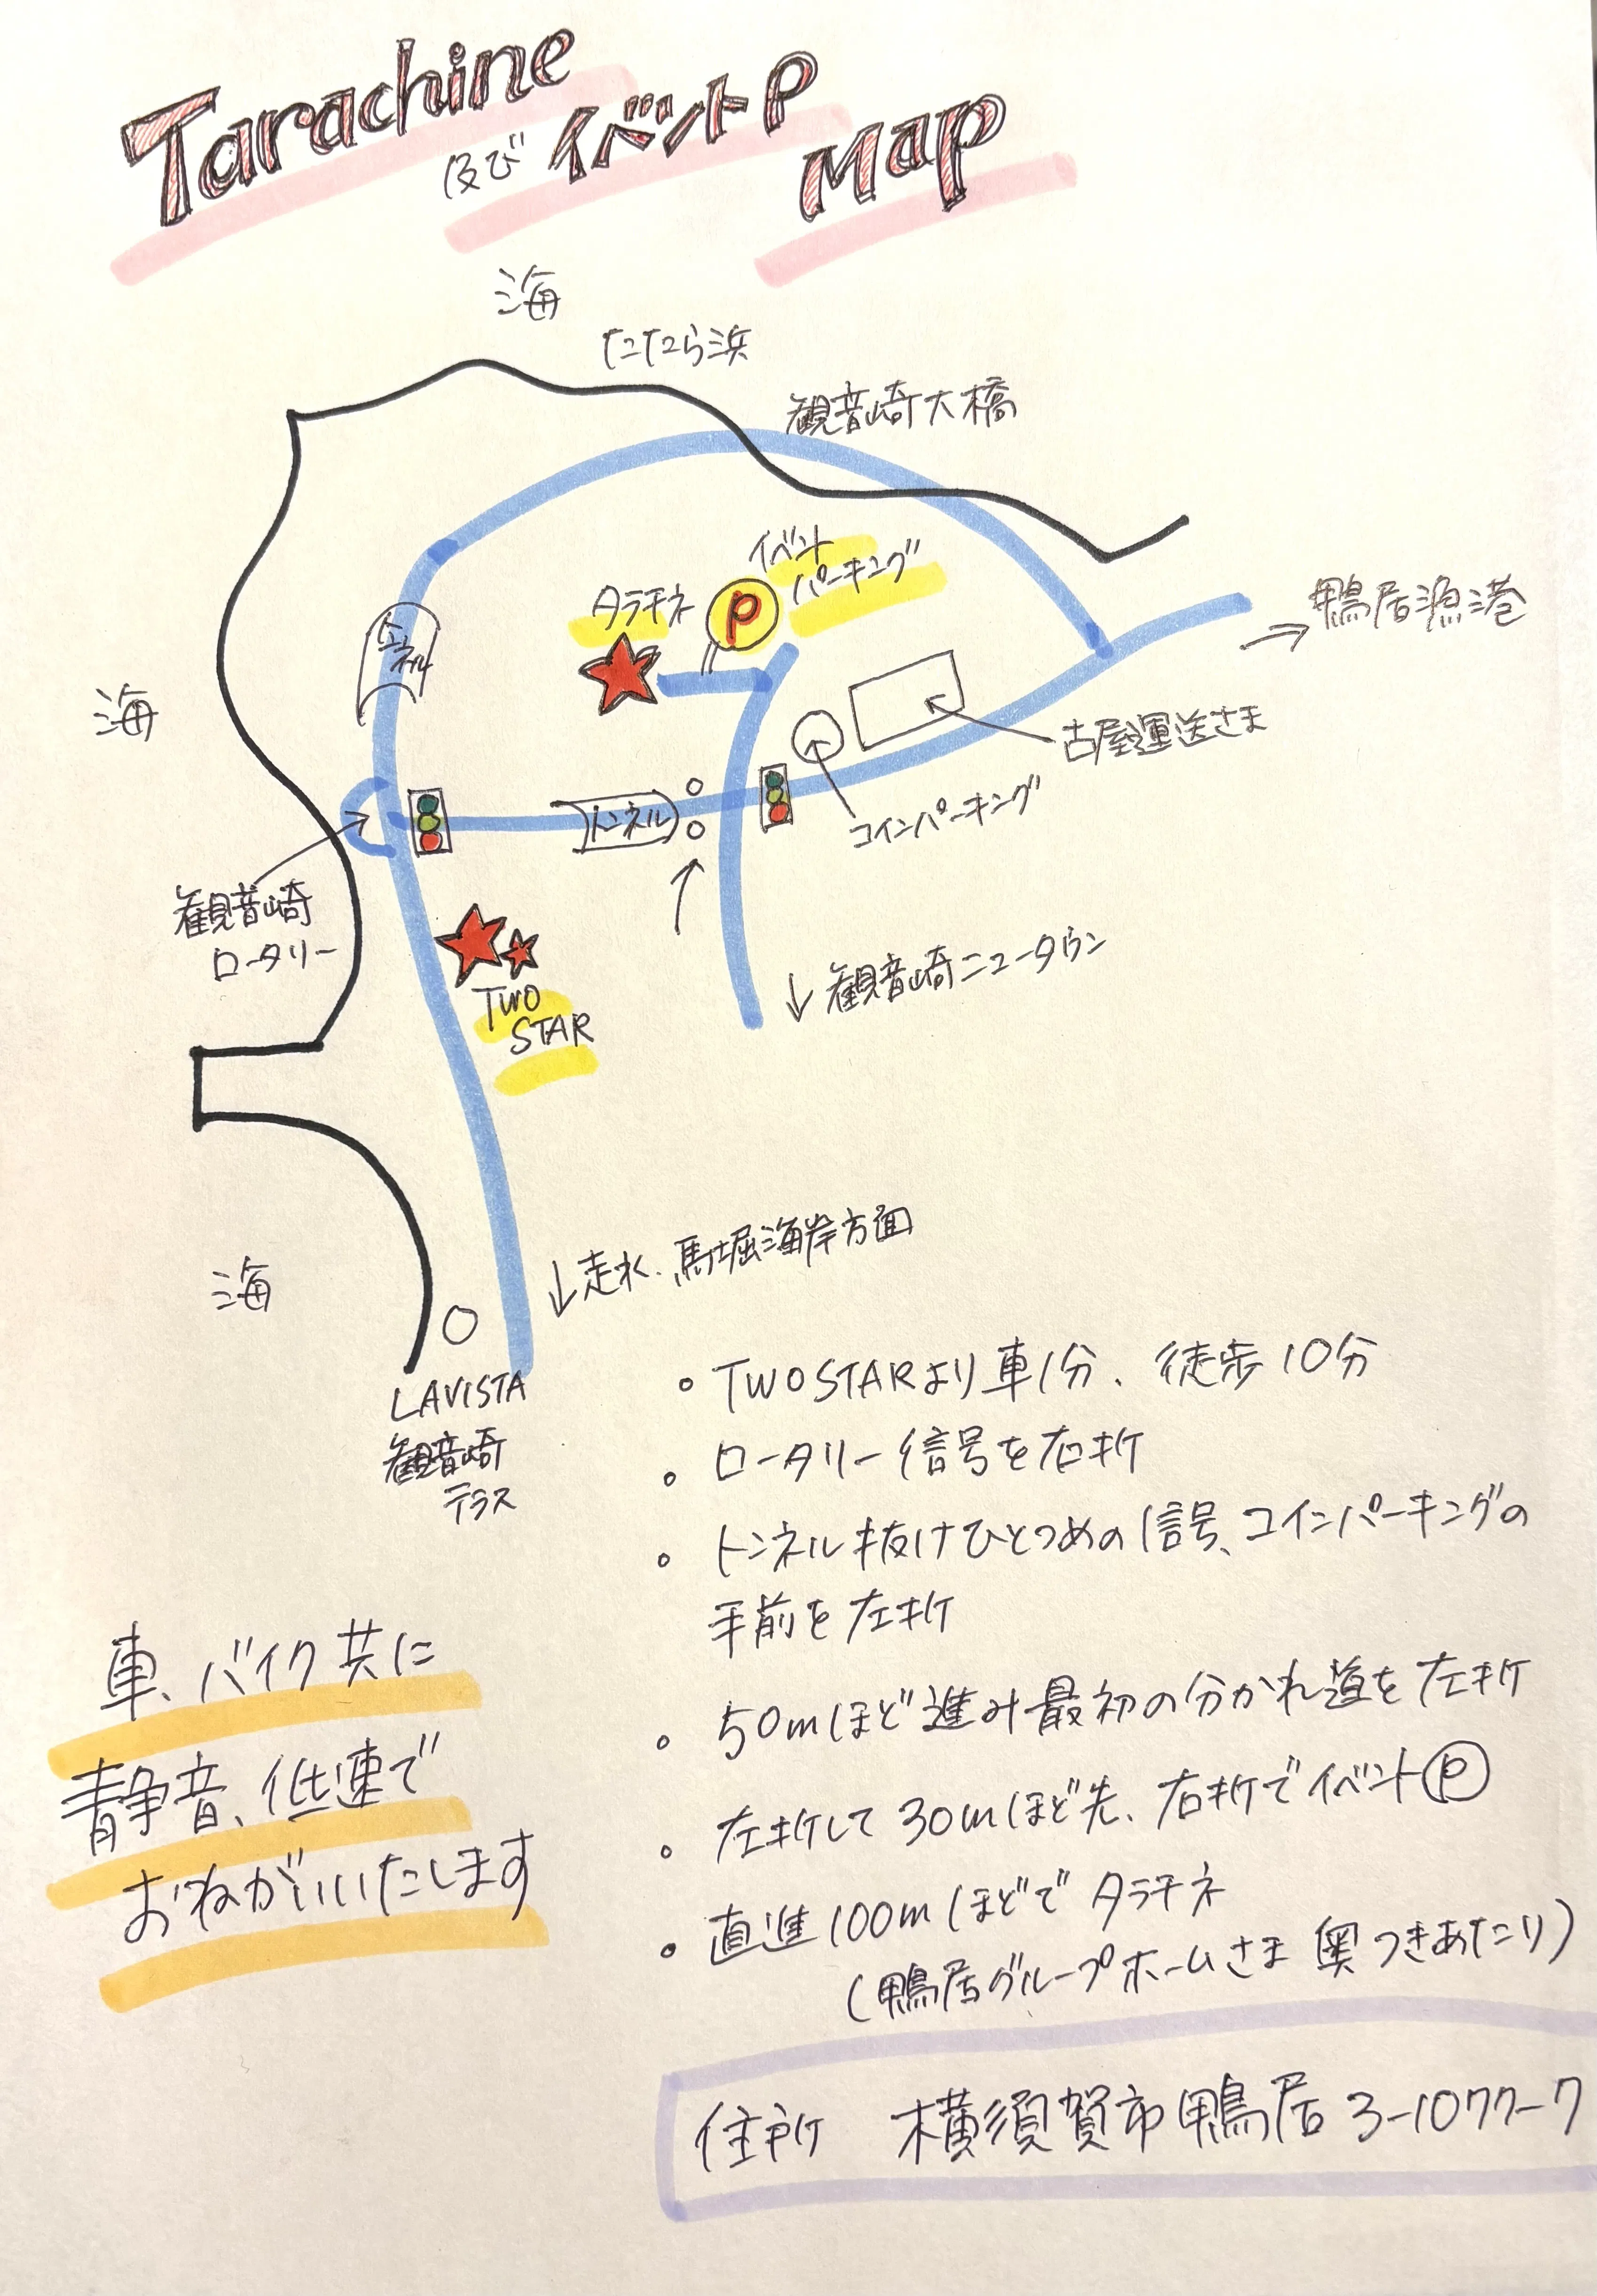 Tarachine
及び イベントP
Map
海
たたら浜
観音崎大橋
イベント
パーキング
タラチネ
P
トンネル
鴨居漁港
海
古屋運送さま
トンネル
コインパーキング
観音崎
ロータリー
↓観音崎ニュータウン
TWO
STAR
↓走水、馬堀海岸方面
海
LAVISTA
観音崎
テラス
• TWO STARより車1分、徒歩10分
• ロータリー信号を右折
• トンネル抜けひとつめの信号、コインパーキングの
手前を左折
• 50mほど進み最初の分かれ道を左折
• 左折して30mほど先、右折でイベントⓅ
• 直進100mほどでタラチネ
(鴨居グループホームさま 奥つきあたり)
車、バイク共に
静音、低速で
おねがいいたします
住所 横須賀市鴨居3-1077-7